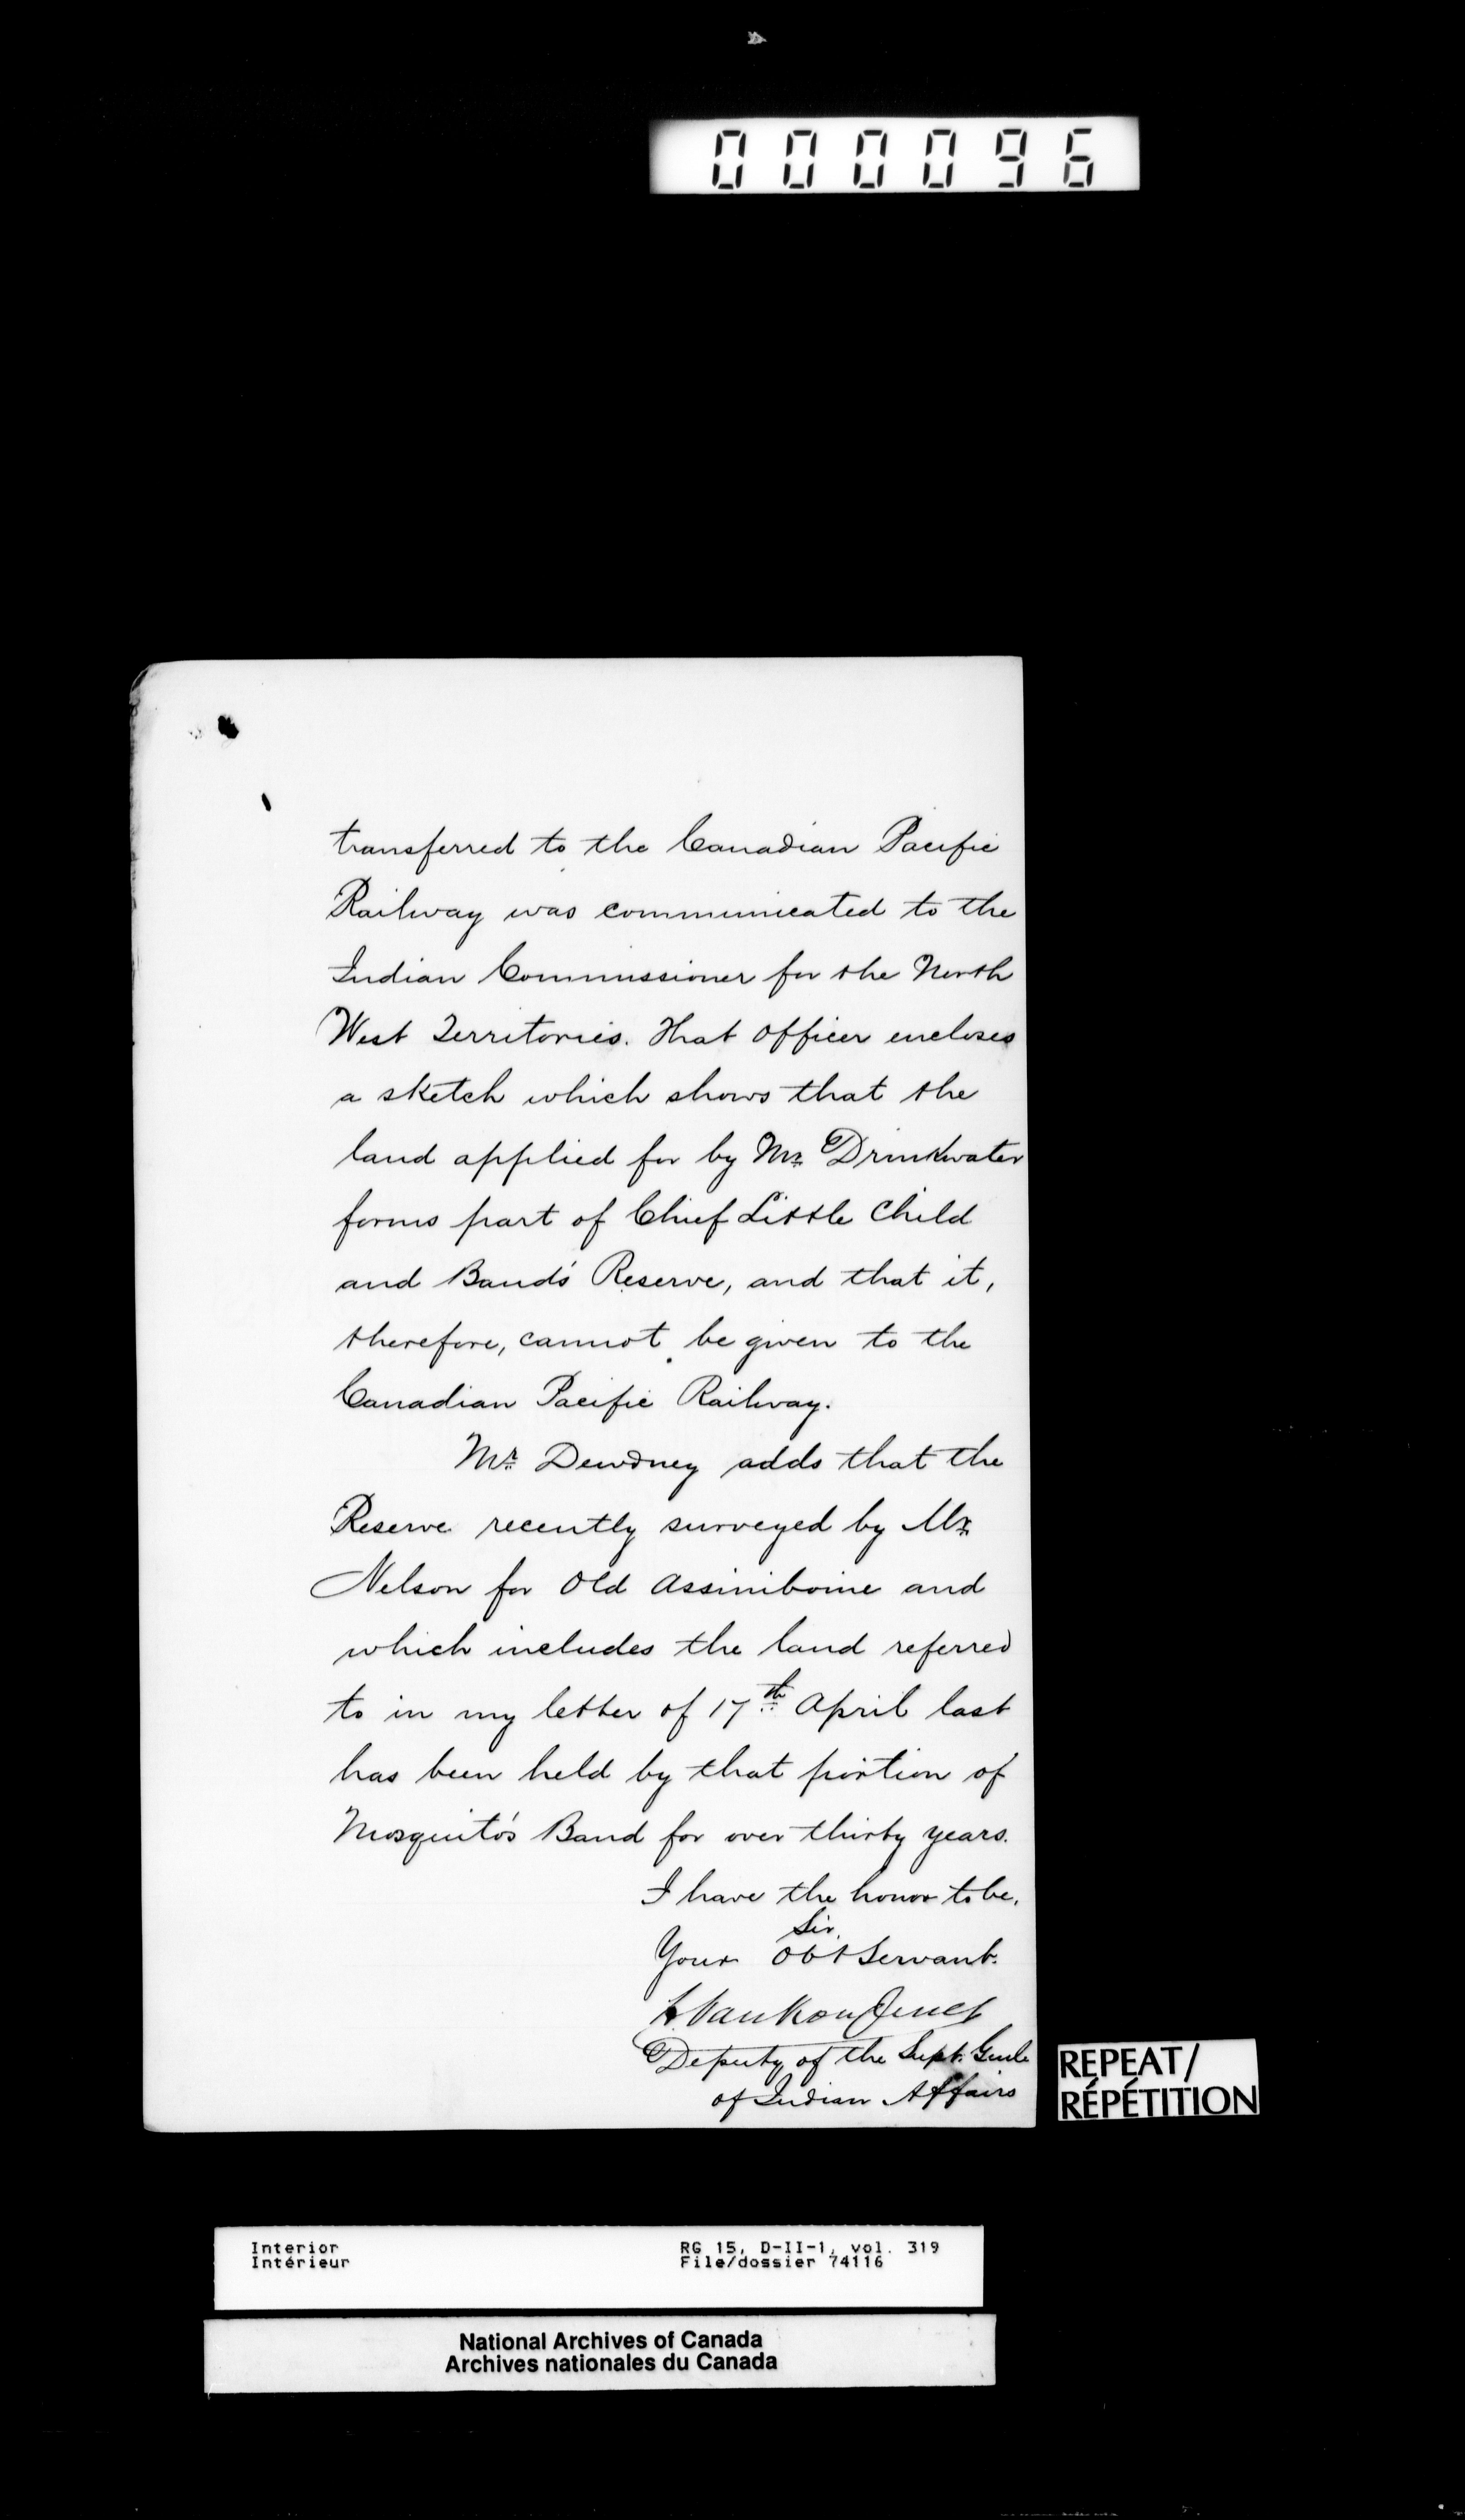 000096
transferred to the Canadian Pacific
Railway was communicated to the
Indian Commissioner for the North
West Territories. That officer encloses
a sketch which shows that the
land applied for by Mr Drinkwater
forms part of Chief Little Child
and Band's Reserve, and that it,
therefore, cannot be given to the
Canadian Pacific Railway.
Mr. Dewdney adds that the
Reserve recently surveyed by Mr
Nelson for Old Assiniboine and
which includes the land referred
to in my letter of 17th April last
has been held by that portion of
Mosquito's Band for over thirty years.
I have the honor to be,
Sir,
Your Obt Servant.
L VanKoughnet
Deputy of the Supt. Genl.
of Indian Affairs
REPEAT/
RÉPÉTITION
Interior RG 15, D-II-1, vol. 319
Intérieur File/dossier 74116
National Archives of Canada
Archives nationales du Canada